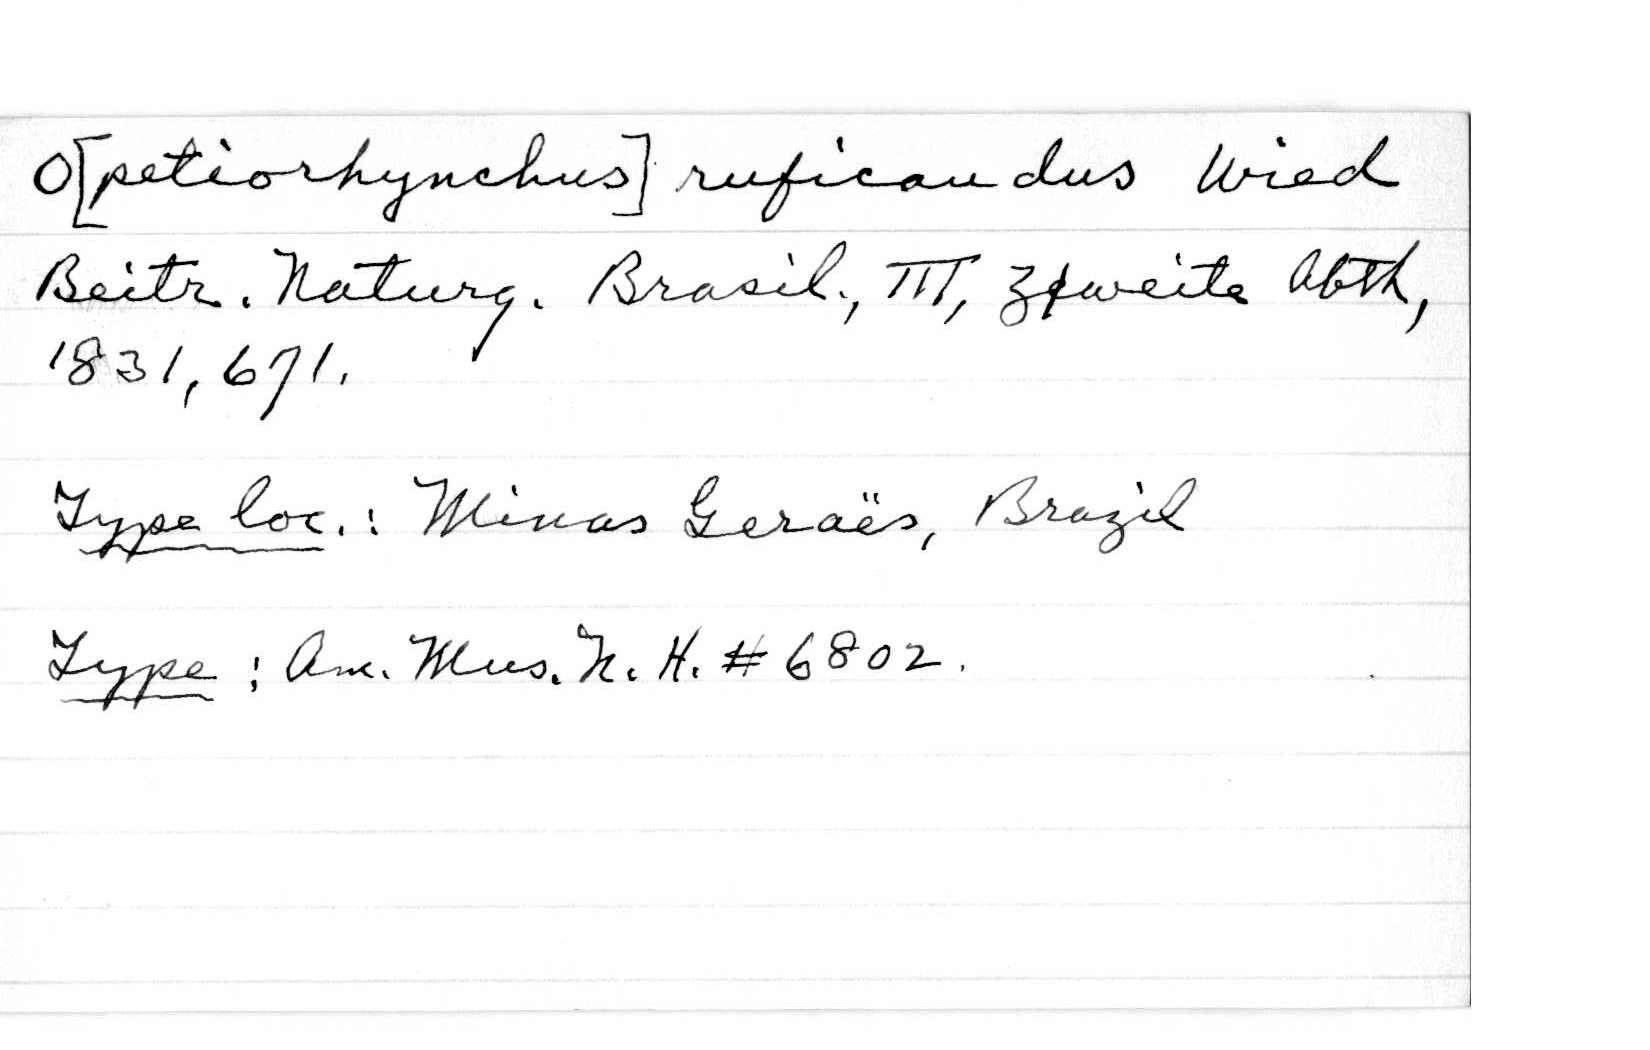 O[petiorhynchus] ruficaudus Wied
Beitr. Naturg. Brasil., III, Zweite Abth,
1831, 671.
Type loc.: Minas Geraës, Brazil
Type: Am. Mus. N. H. # 6802.